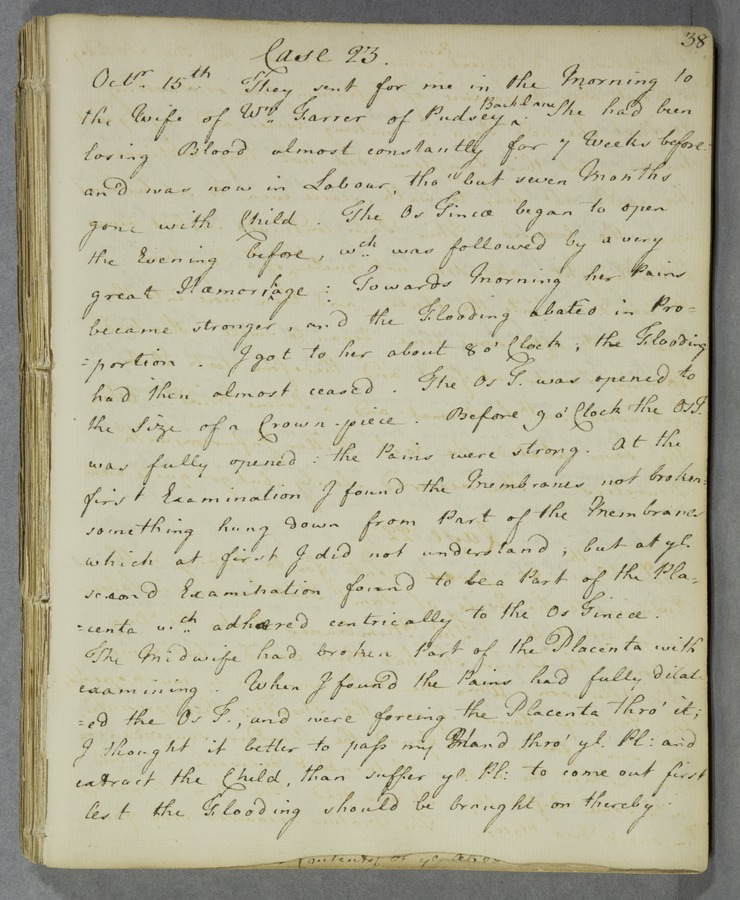 38
Case 23.
Octr. 15th They sent for me in the Morning to
the Wife of Wm. Garrer of Pudsey Backlane. She had been
losing Blood almost constantly for 7 Weeks before
and was now in Labour, tho' but seven Months
gone with Child. The Os Tincæ began to open
the Evening before, wch. was followed by a very
great Hæmorrhage: Towards Morning her Pains
became stronger, and the Flooding abated in Pro=
=portion. I got to her about 8 o'Clock; the Flooding
had then almost ceased. The Os T. was opened to
the Size of a Crown-piece. Before 9 o'Clock the Os T.
was fully opened: the Pains were strong. At the
first Examination I found the Membranes not broken:
something hung down from Part of the Membranes
which at first I did not understand; but at yt.
second Examination found to be a Part of the Pla=
=centa wch. adhered centrically to the Os Tincæ.
The Midwife had broken Part of the Placenta with
examining. When I found the Pains had fully dilat=
=ed the Os T., and were forcing the Placenta thro' it;
I thought it better to pass my Hand thro' yt. Pl: and
extract the Child, than suffer yt. Pl: to come out first
lest the Flooding should be brought on thereby.